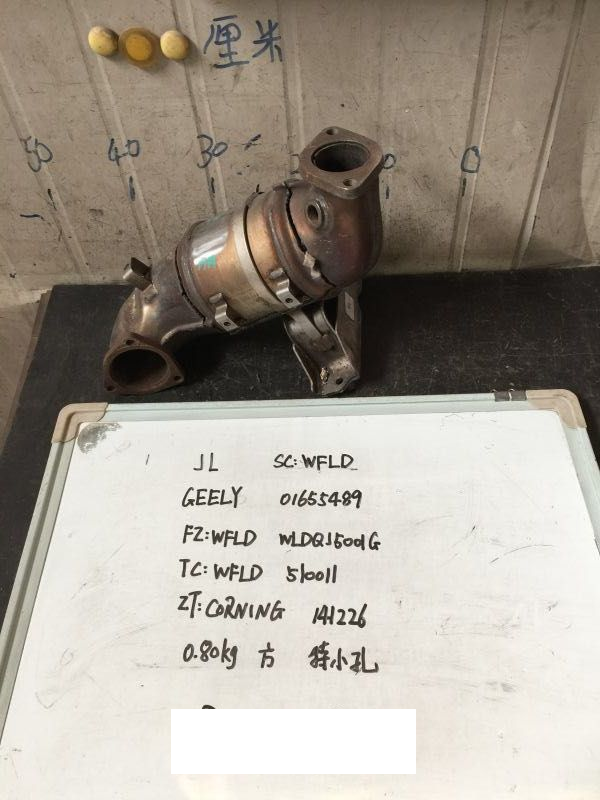 厘米
50 40 30 0
JL SC:WFLD
GEELY 01655489
FZ:WFLD WLDQJ5001G
TC:WFLD 510011
ZT:CORNING 141226
0.80kg 方 特小孔